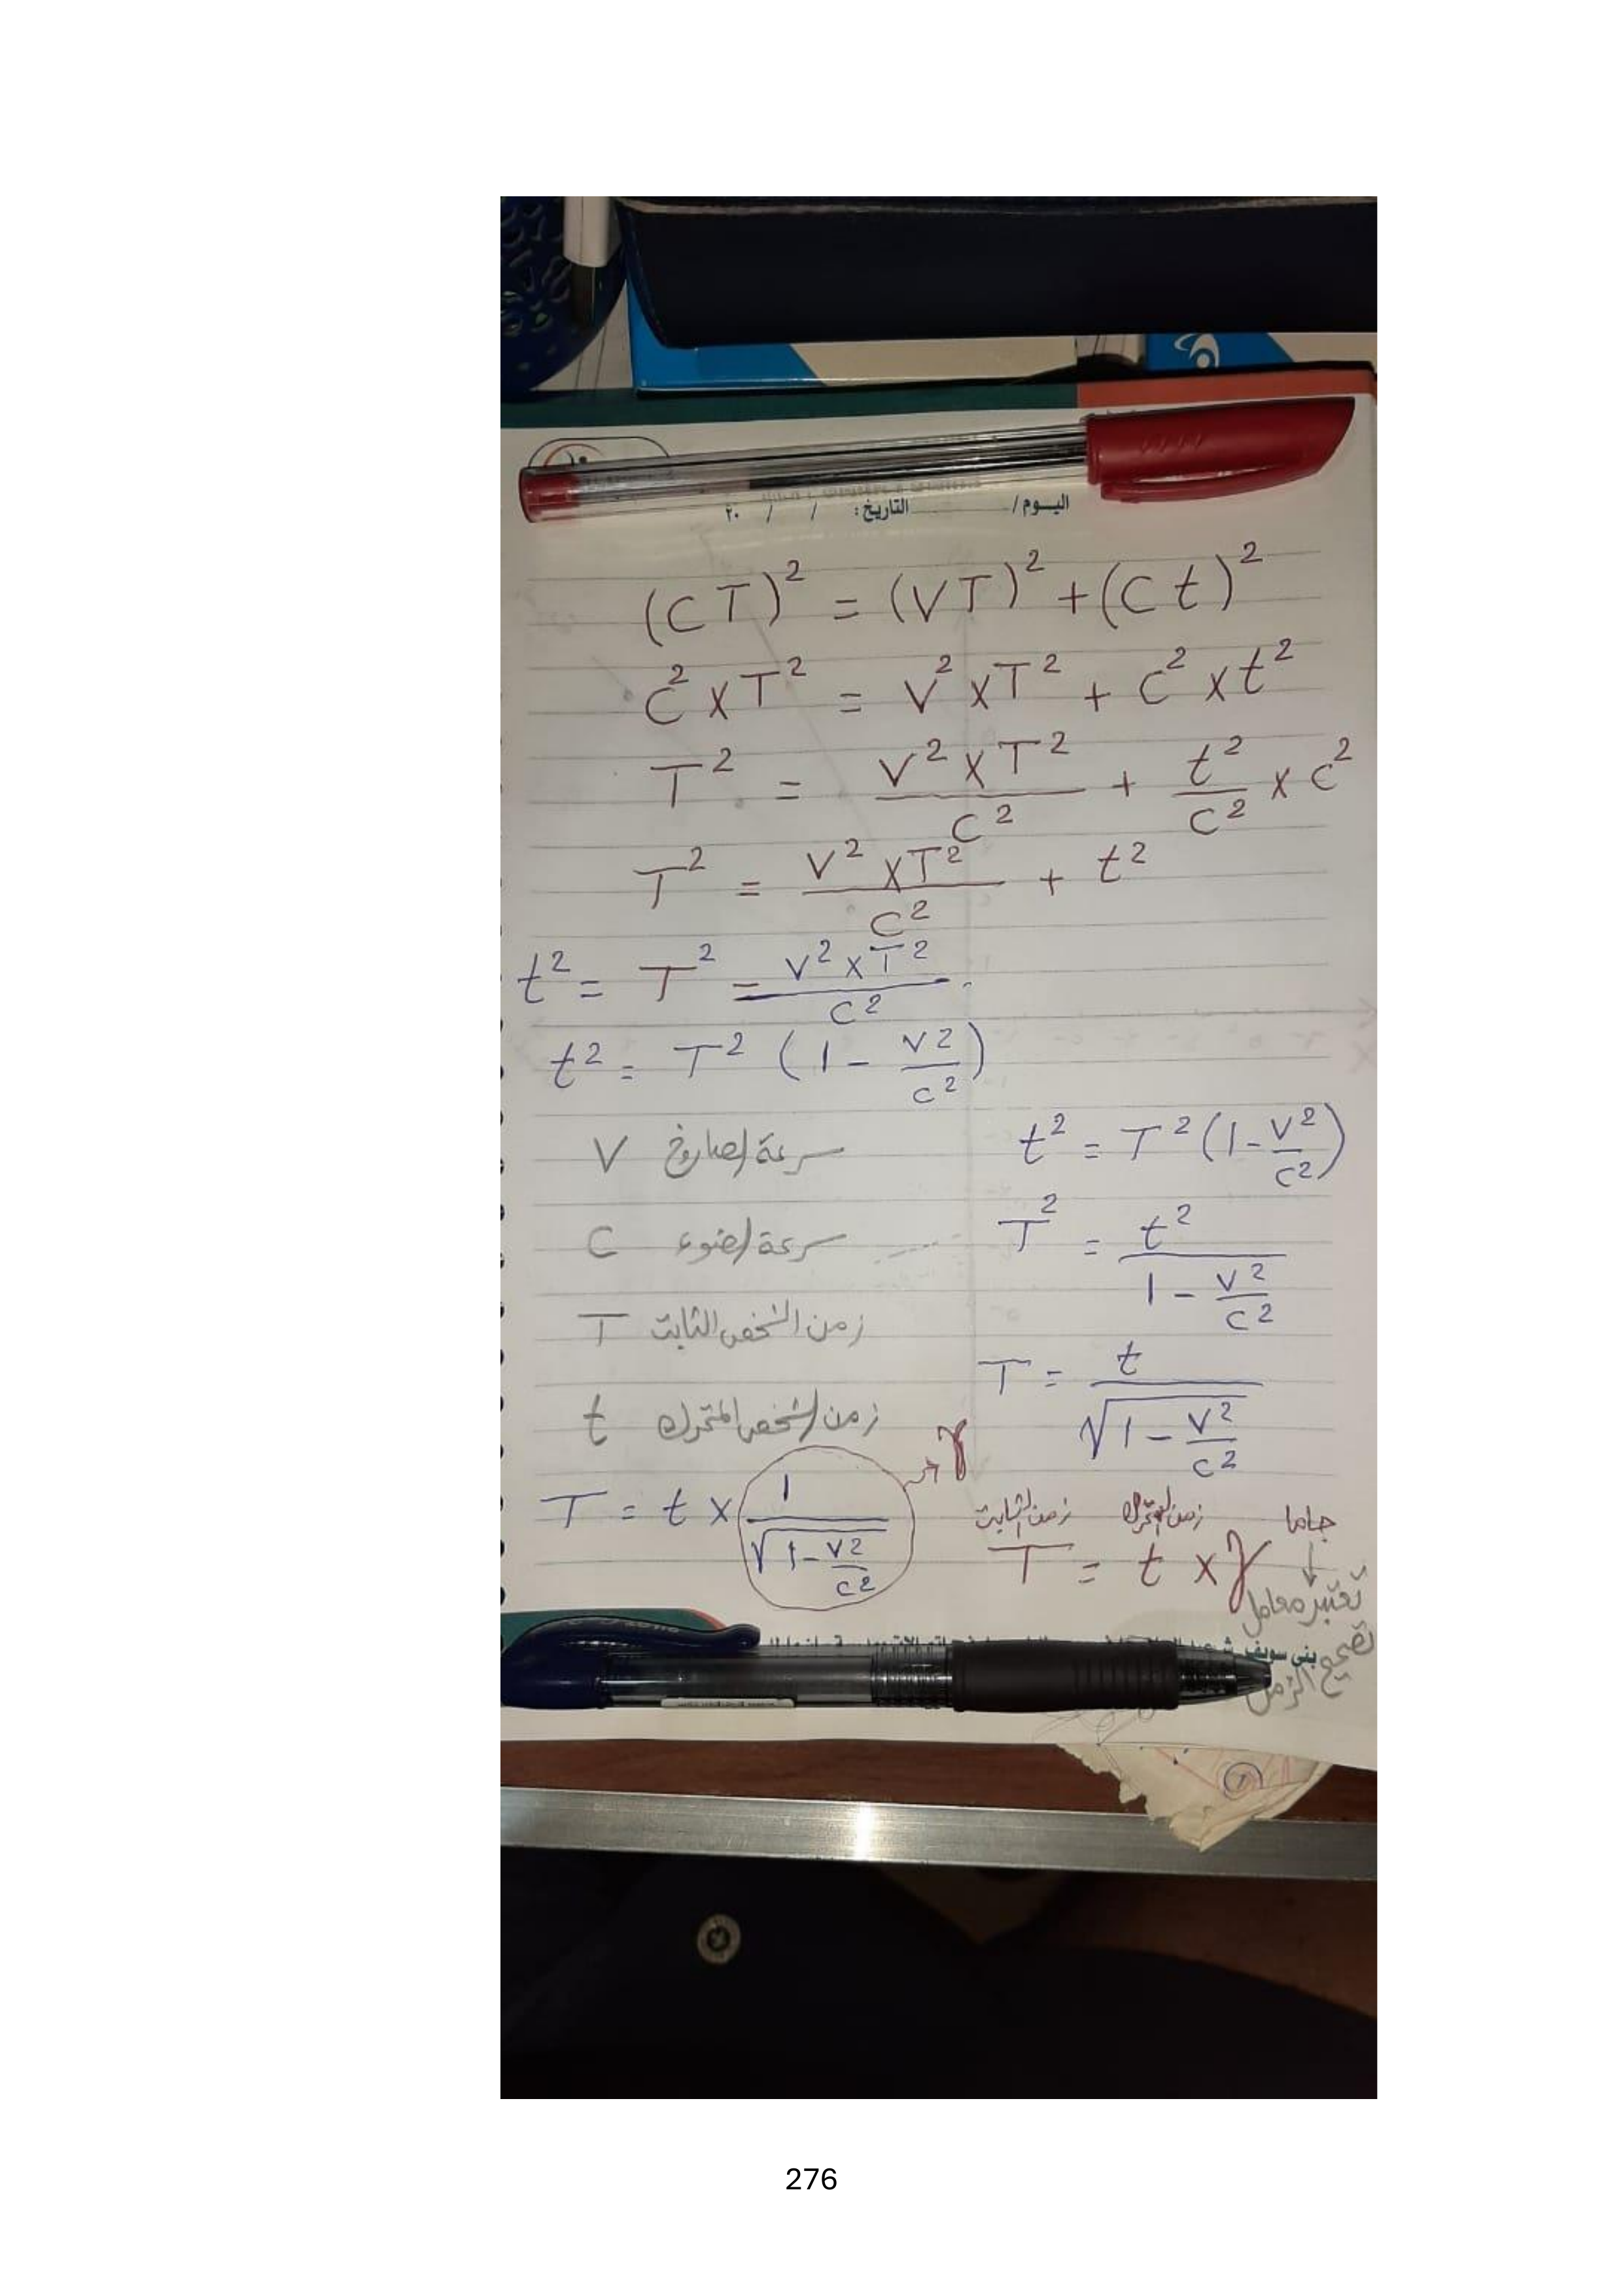 اليوم / التاريخ : / / ٢٠
(CT)² = (VT)² + (Ct)²
C² × T² = V² × T² + C² × t²
T² = V² × T² / C² + t² / C² × C²
T² = V² × T² / C² + t²
t² = T² = V² × T² / C²
t² = T² (1 - V² / C²)
V سرعة الصاروخ
C سرعة الضوء
T زمن الشخص الثابت
t زمن الشخص المتحرك
t² = T² (1 - V² / C²)
T² = t² / 1 - V² / C²
T = t / √1 - V² / C²
T = t × 1 / √1 - V² / C² → γ
زمن الثابت زمن المتحرك جاما
T = t × γ
تعتبر معامل
تصحيح الزمن
بني سويف
276